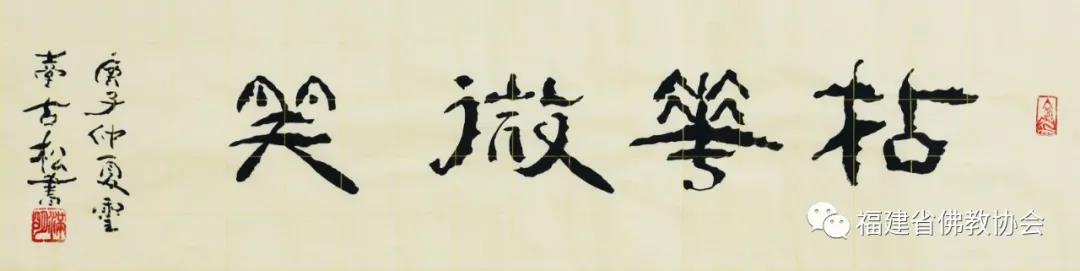 拈華微笑
庚子仲夏靈
臺古松書
福建省佛教协会